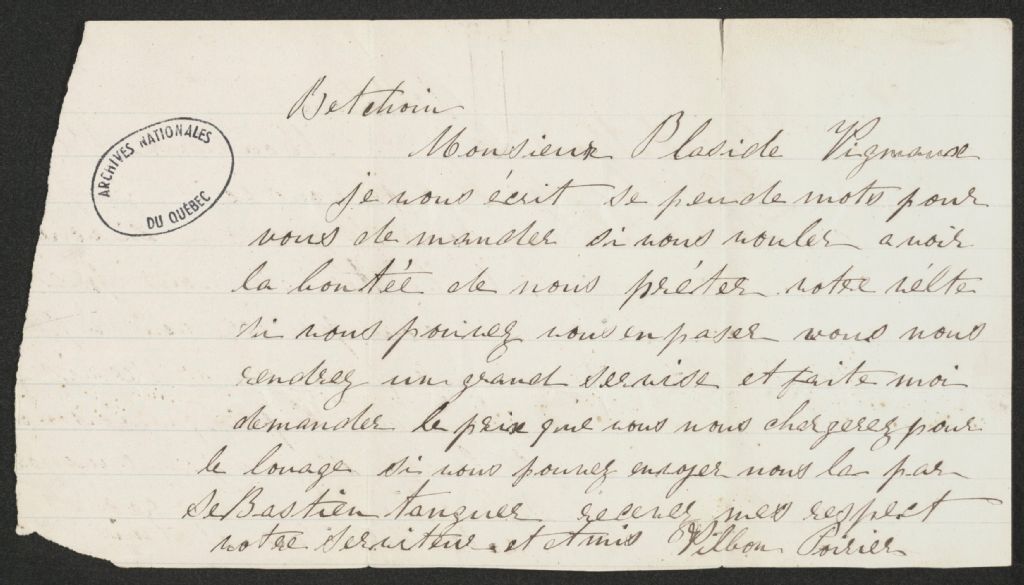 Betchoin
ARCHIVES NATIONALES
DU QUÉBEC
Monsieur Plaside Vigneaux
je vous écrit se peu de mots pour
vous de mander si vous vouler avoir
la bontéé de nous préster votre vélte
si vous pouvez vous en paser vous nous
rendrez un grand servise et faite moi
demander le prix que vous nous chargerez pour
le louage si vous pouvez envoyer nous la par
seBastien tanguer recever mes respect
votre serviteur et Amis Vilbon Poirier